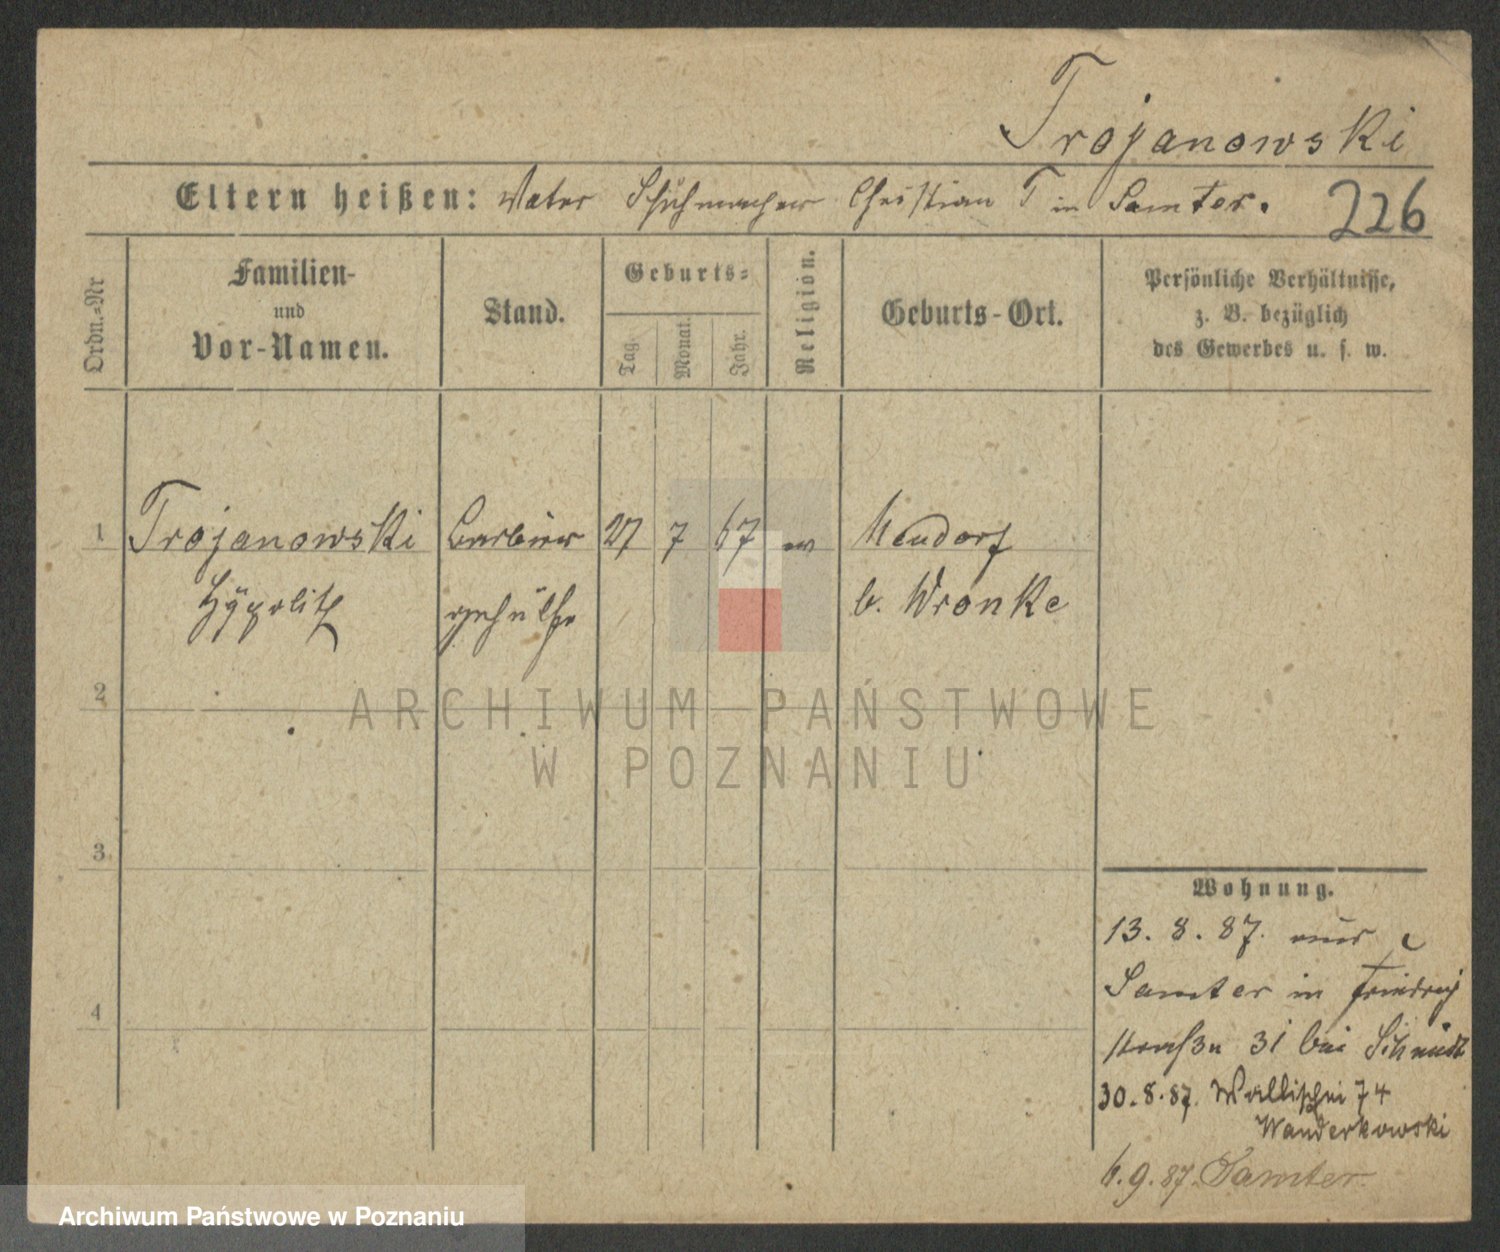 Trojanowski
Eltern heißen: Vater Schuhmacher Christian T in Samter.
226
Ordn.=Nr
Familien-
und
Vor-Namen.
Stand.
Geburts=
Tag.
Monat.
Jahr.
Religion.
Geburts-Ort.
Persönliche Verhältnisse,
z. B. bezüglich
des Gewerbes u. s. w.
1 Trojanowski Barbier 27 7 67 Neudorf
Hypolith gehülfe b. Wronke
2
3
4
Wohnung.
13. 8. 87. aus
Samter in Friedrich
straße 31 bei Schmidt
30. 8. 87. Wallischei 74
Wanderkowski
6. 9. 87. Samter
ARCHIWUM PAŃSTWOWE
W POZNANIU
Archiwum Państwowe w Poznaniu